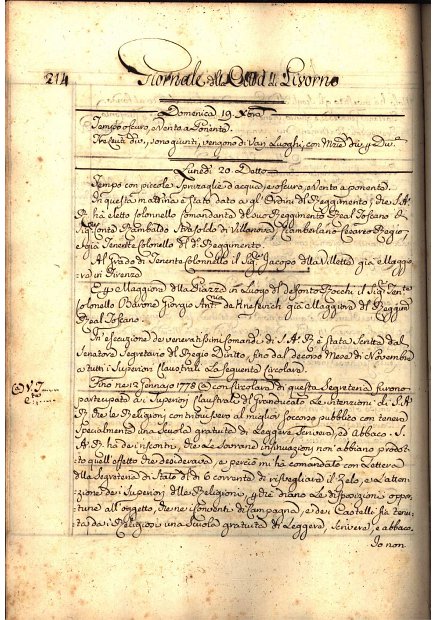 214
Giornale della Città di Livorno
Domenica 19 Xbre
Tempo oscuro, e Vento a Ponente.
sono giunti, vengono di Vari Luoghi, con
Lunedì 20 Detto
Tempo con piccole Spruzzaglie d'acqua, e oscuro, e Vento a ponente.
In questa mattina è stato dato agl'Ordini di Reggimento, che S: A:
R: ha eletto Colonnello Comandante di suo Reggimento Real Toscano il
Sig: Conte Rambaldo Strasoldo di Villanova, Ciamberlano Cesareo Regio,
e già Tenente Colonello di do Reggimento.
Al Grado di Tenente Colonnello il Sig: Jacopo della Villetta già Maggio
re in Firenze
E per Maggiore della Piazza in Luogo del defonto il Sig: Tente
Colonello Barone Giorgio de già Maggiore del Reggimto
Real Toscano.
In esecuzione de veneratissimi Comandi di S: A: R: è stata Scritta dal
Senatore Segretario del Regio Diritto, fino dal decorso Mese di Novembre
a tutti i Superiori Claustrali La Seguente Circolare.
Fino ne 12 Gennajo 1778 con Circolare di questa Segreteria furono
partecipate ai Superiori Claustrali del Granducato Le intenzioni di S: A:
R: che le Religioni contribuissero al miglior Soccorso pubblico con tenere
Specialmente una Scuola gratuita di Leggere, Scrivere, ed Abbaco. S:
A: R: ha dei riscontri, che Le Sovrane insinuazioni non abbiano prodot
to quell'effetto che desiderava, e perciò mi ha comandato con Lettera
della Segreteria di Stato del dì 6 corrente di risvegliare il Zelo, e L'atten
zione dei Superiori delle Religioni, perché diano Le disposizioni oppor
tune all'oggetto, che nei Conventi di Campagna, e dei Castelli sia tenu
ta dai Religiosi una Scuola gratuita di Leggere, Scrivere, e abbaco.
Io non